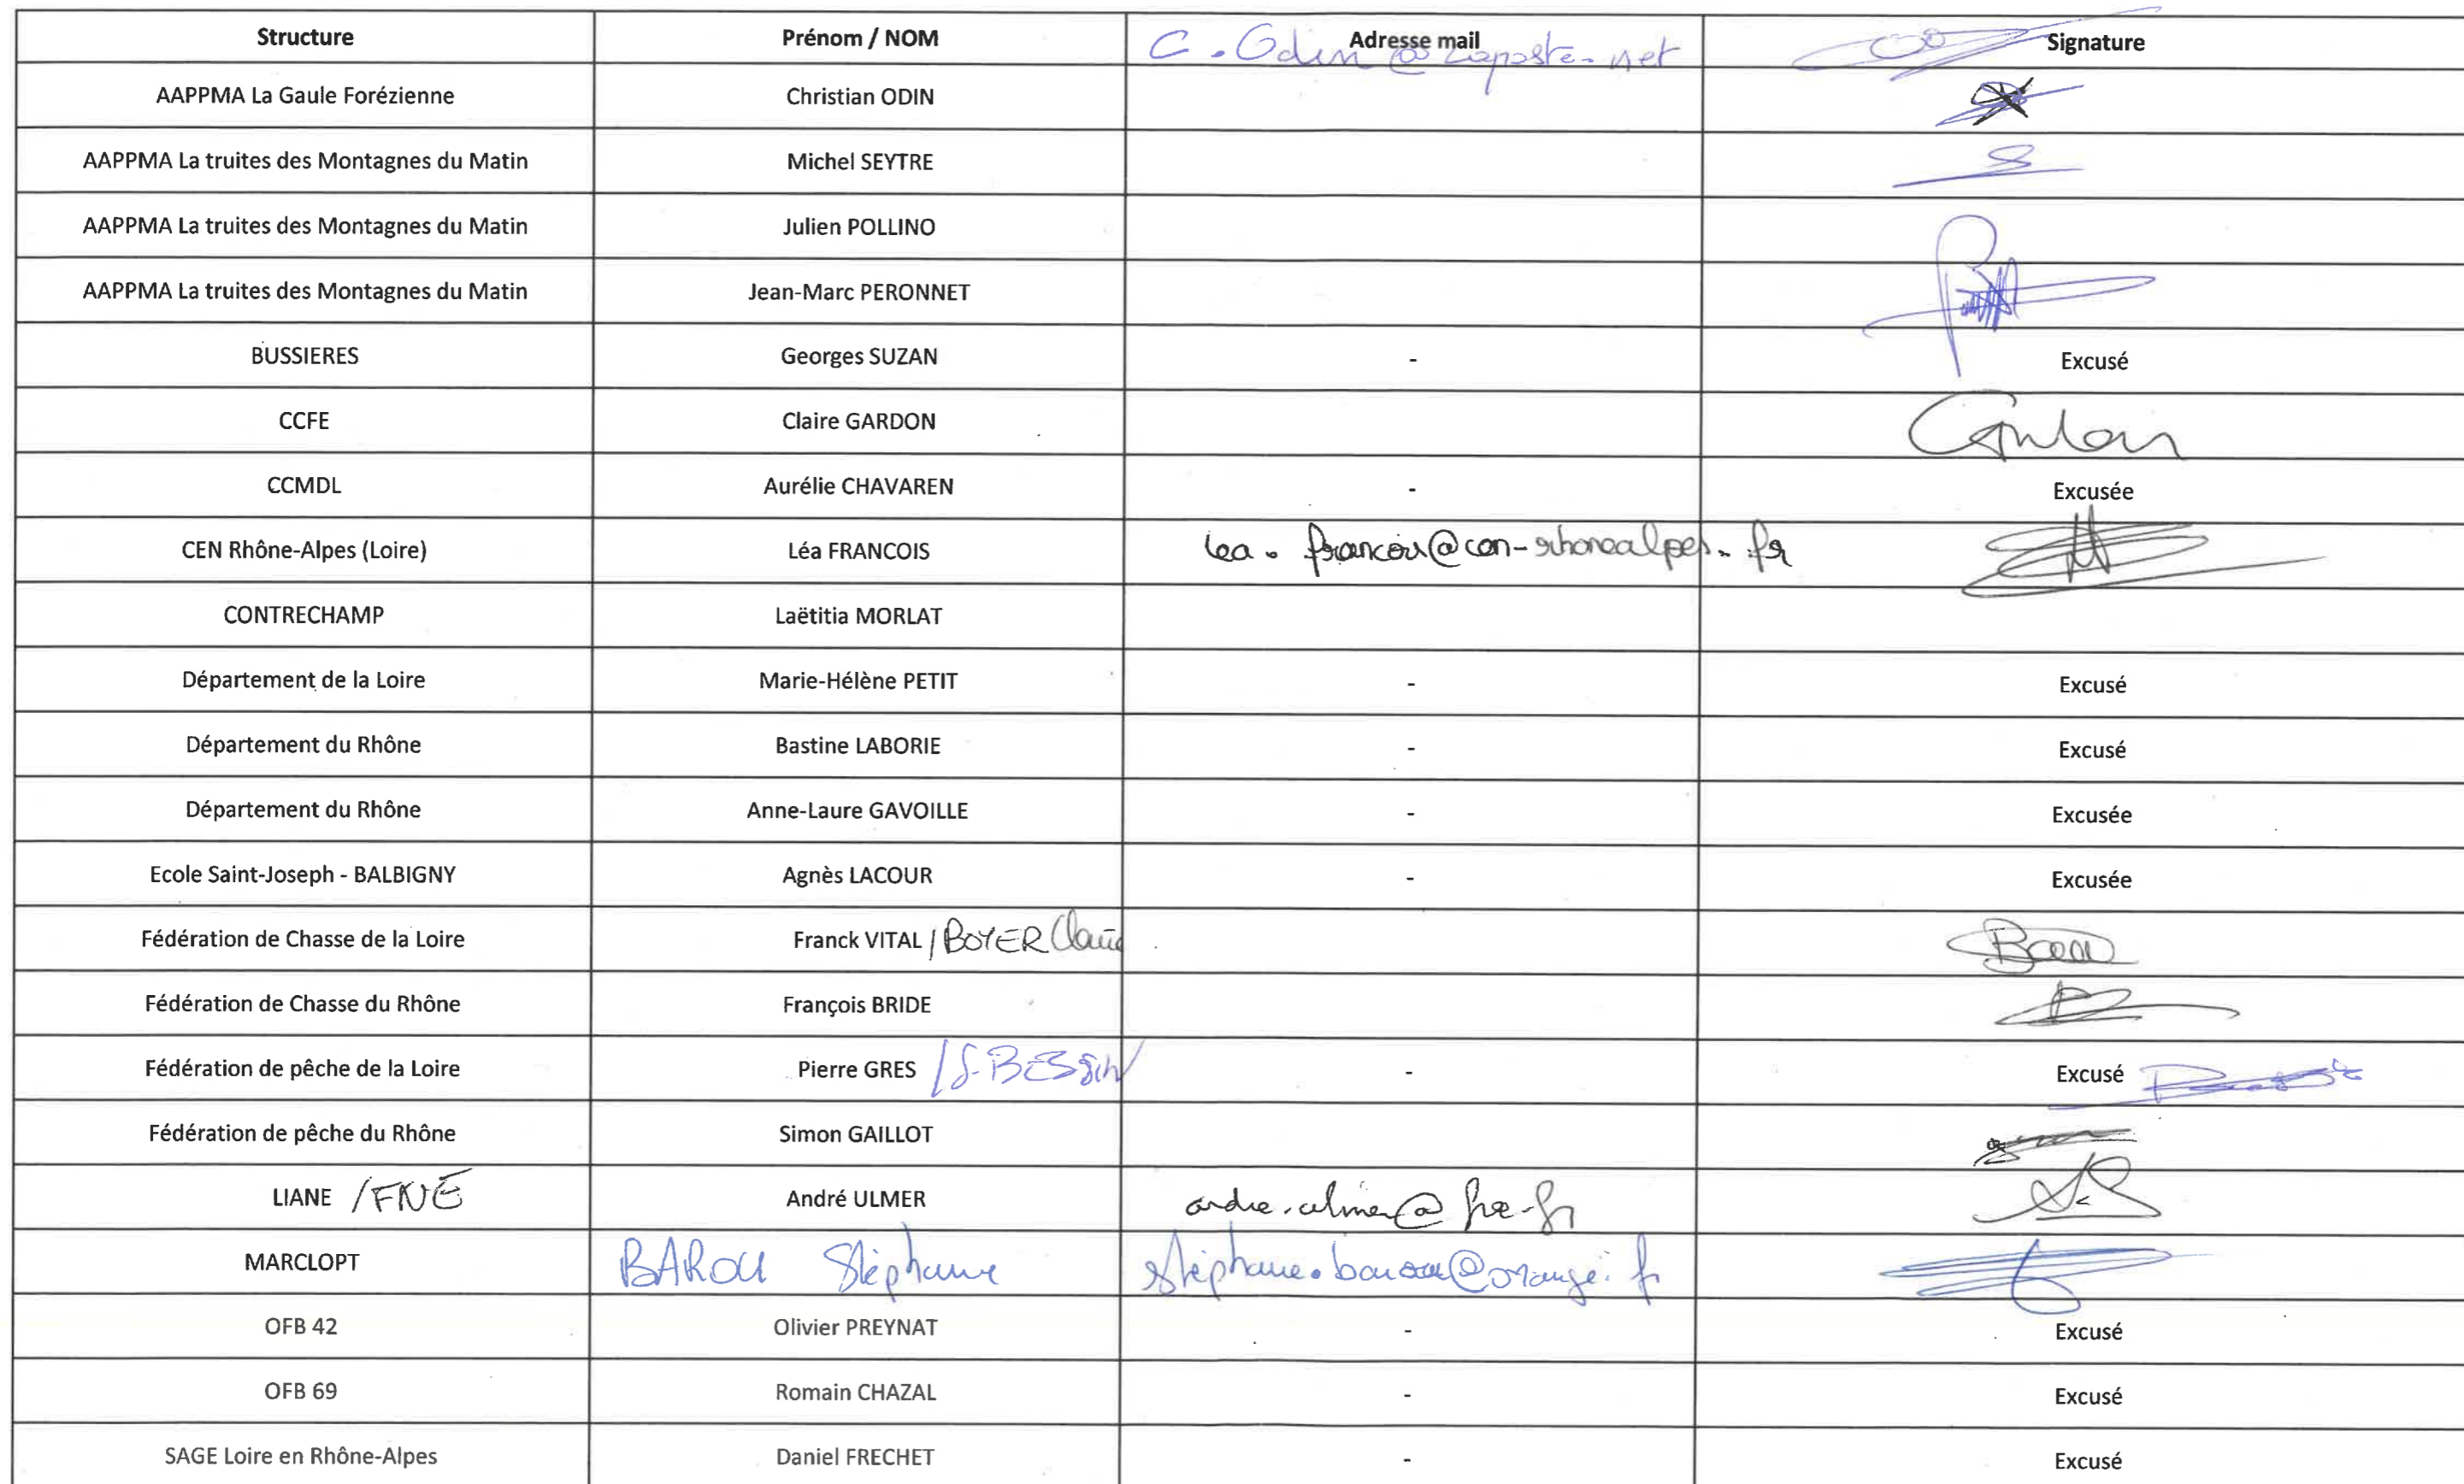 Structure Prénom / NOM Adresse mail Signature
C.Odin@laposte.net
AAPPMA La Gaule Forézienne Christian ODIN
AAPPMA La truites des Montagnes du Matin Michel SEYTRE
AAPPMA La truites des Montagnes du Matin Julien POLLINO
AAPPMA La truites des Montagnes du Matin Jean-Marc PERONNET
BUSSIERES Georges SUZAN - Excusé
CCFE Claire GARDON
CCMDL Aurélie CHAVAREN - Excusée
CEN Rhône-Alpes (Loire) Léa FRANCOIS lea.francois@cen-rhonealpes.fr
CONTRECHAMP Laëtitia MORLAT
Département de la Loire Marie-Hélène PETIT - Excusé
Département du Rhône Bastine LABORIE - Excusé
Département du Rhône Anne-Laure GAVOILLE - Excusée
Ecole Saint-Joseph - BALBIGNY Agnès LACOUR - Excusée
Fédération de Chasse de la Loire Franck VITAL / BOYER
Fédération de Chasse du Rhône François BRIDE
Fédération de pêche de la Loire Pierre GRES - Excusé
Fédération de pêche du Rhône Simon GAILLOT
LIANE /FNE André ULMER andre.ulmer@free.fr
MARCLOPT BAROU Stéphane stephane.barou@orange.fr
OFB 42 Olivier PREYNAT - Excusé
OFB 69 Romain CHAZAL - Excusé
SAGE Loire en Rhône-Alpes Daniel FRECHET - Excusé